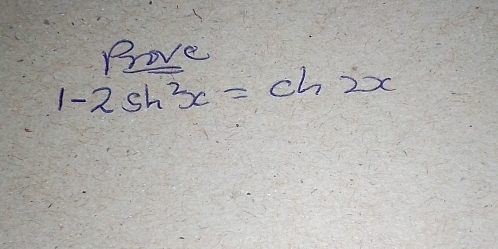 Prove
1-2 sh²x = ch 2x